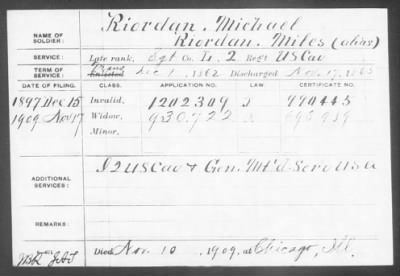 Riordan, Michael
NAME OF SOLDIER: Riordan, Miles (alias)
SERVICE: Late rank, Sgt Co. L, 2 Reg't US Cav
TERM OF SERVICE: Trans Enlisted Dec 1, 1862 Discharged Nov. 17, 1865
DATE OF FILING. CLASS. APPLICATION NO. LAW CERTIFICATE NO.
1897 Dec 15 Invalid. 1202309 990445
1909 Nov 17 Widow. 930.722
Minor.
ADDITIONAL SERVICES: US Cav & Gen. Mt'd Serv US A
REMARKS:
Died Nov. 10, 1909, at Chicago, Ill.